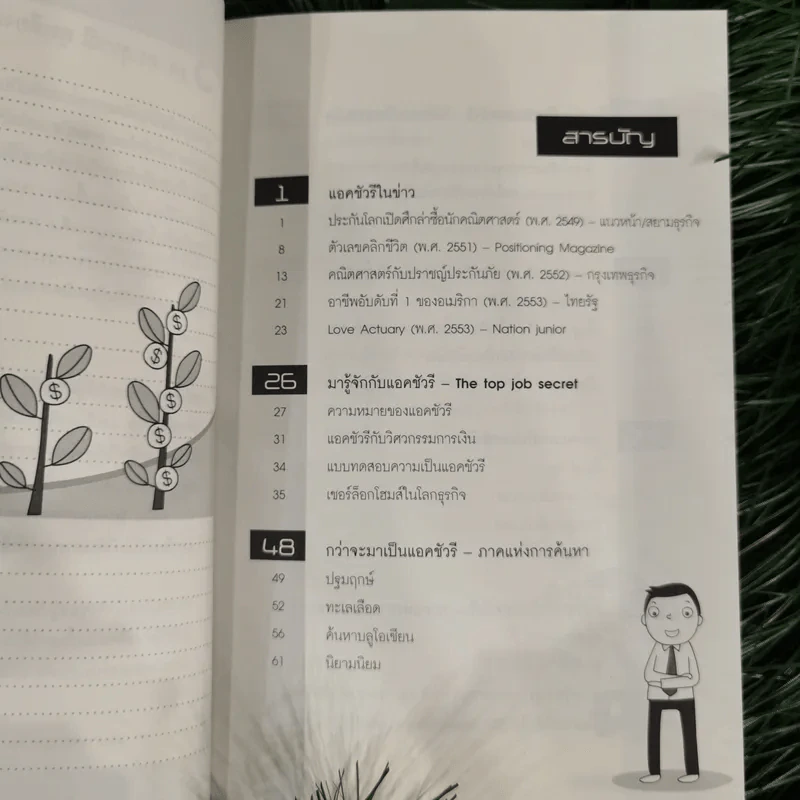 สารบัญ
1 แอคชัวรีในข่าว
1 ประกันโลกเปิดศึกล่าซื้อนักคณิตศาสตร์ (พ.ศ. 2549) – แนวหน้า/สยามธุรกิจ
8 ตัวเลขคลิกชีวิต (พ.ศ. 2551) – Positioning Magazine
13 คณิตศาสตร์กับปราชญ์ประกันภัย (พ.ศ. 2552) – กรุงเทพธุรกิจ
21 อาชีพอันดับที่ 1 ของอเมริกา (พ.ศ. 2553) – ไทยรัฐ
23 Love Actuary (พ.ศ. 2553) – Nation junior
26 มารู้จักกับแอคชัวรี – The top job secret
27 ความหมายของแอคชัวรี
31 แอคชัวรีกับวิศวกรรมการเงิน
34 แบบทดสอบความเป็นแอคชัวรี
35 เชอร์ล็อกโฮมส์ในโลกธุรกิจ
48 กว่าจะมาเป็นแอคชัวรี – ภาคแห่งการค้นหา
49 ปฐมฤกษ์
52 ทะเลเลือด
56 ค้นหาบลูโอเชียน
61 นิยามนิยม
$
$
$
$
$
$